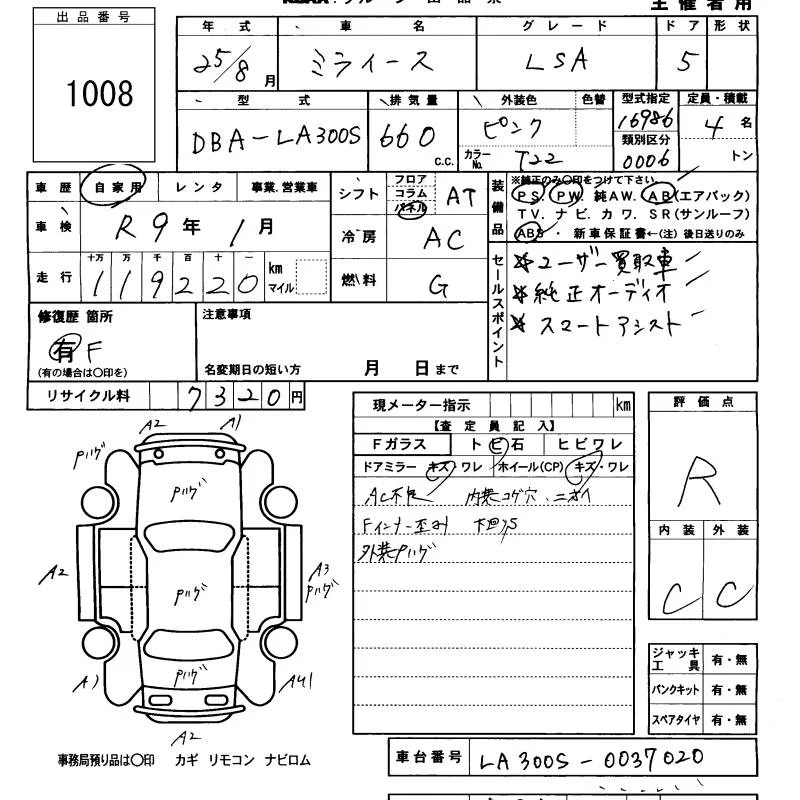 出品番号
1008
主催者用
年式 車名 グレード ドア 形状
25/8月 ミライース LSA 5
型式 排気量 外装色 色替 型式指定 定員・積載
DBA-LA300S 660 C.C. ピンク 16986 4名
カラーNo. T22 類別区分 0006 トン
車歴 自家用 レンタ 事業.営業車
車検 R9年1月
走行 十万 万 千 百 十 一
119220 km マイル
シフト フロア コラム パネル AT
冷房 AC
燃料 G
装備品
※純正のみ〇印をつけて下さい。
PS. PW. 純AW. AB(エアバック)
TV. ナビ. カワ. SR(サンルーフ)
ABS ・ 新車保証書←(注) 後日送りのみ
セールスポイント
※ユーザー買取車
※純正オーディオ
※スマートアシスト
修復歴 箇所
有 F
(有の場合は〇印を)
注意事項
名変期日の短い方 月 日まで
リサイクル料 7320円
現メーター指示 km
【査定員記入】
Fガラス トビ石 ヒビワレ
ドアミラー キズ・ワレ ホイール(CP) キズ・ワレ
AC不良 内装コゲ穴、ニオイ
Fインナー歪み 下回りS
外装Pハゲ
評価点
R
内装 外装
C C
ジャッキ工具 有・無
パンクキット 有・無
スペアタイヤ 有・無
A2 A1
Pハゲ
Pハゲ
A2 Pハゲ A3
Pハゲ
Pハゲ
A1
A2
事務局預り品は〇印 カギ リモコン ナビロム
車台番号 LA300S-0037020